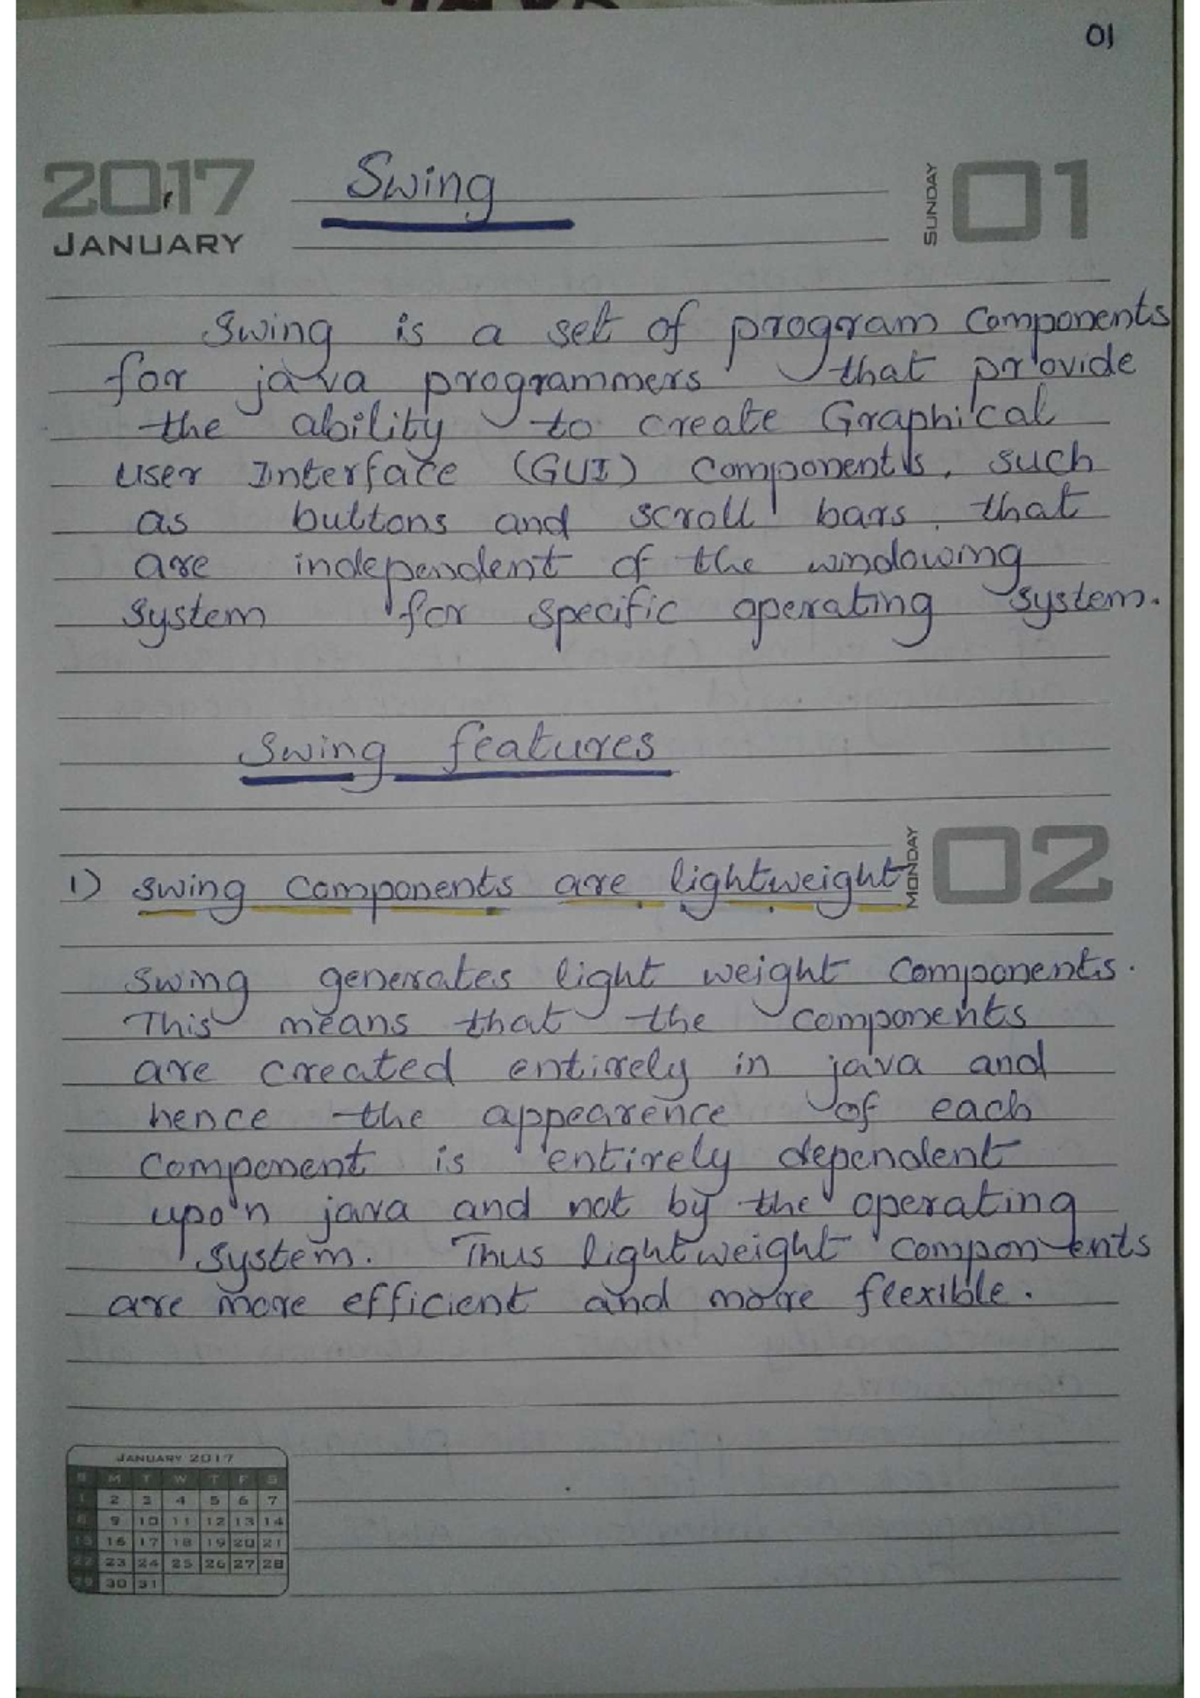 01
2017
JANUARY
Swing
SUNDAY
01
Swing is a set of program Components
for java programmers that provide
the ability to create Graphical
user Interface (GUI) Components, such
as buttons and scroll bars, that
are independent of the windowing
system for specific operating system.
Swing features
MONDAY
02
1) swing Components are lightweight
Swing generates light weight Components.
This means that the components
are created entirely in java and
hence the appearence of each
Component is entirely dependent
upon java and not by the operating
system. Thus lightweight components
are more efficient and more flexible.
JANUARY 2017
S M T W T F S
1 2 3 4 5 6 7
8 9 10 11 12 13 14
15 16 17 18 19 20 21
22 23 24 25 26 27 28
29 30 31